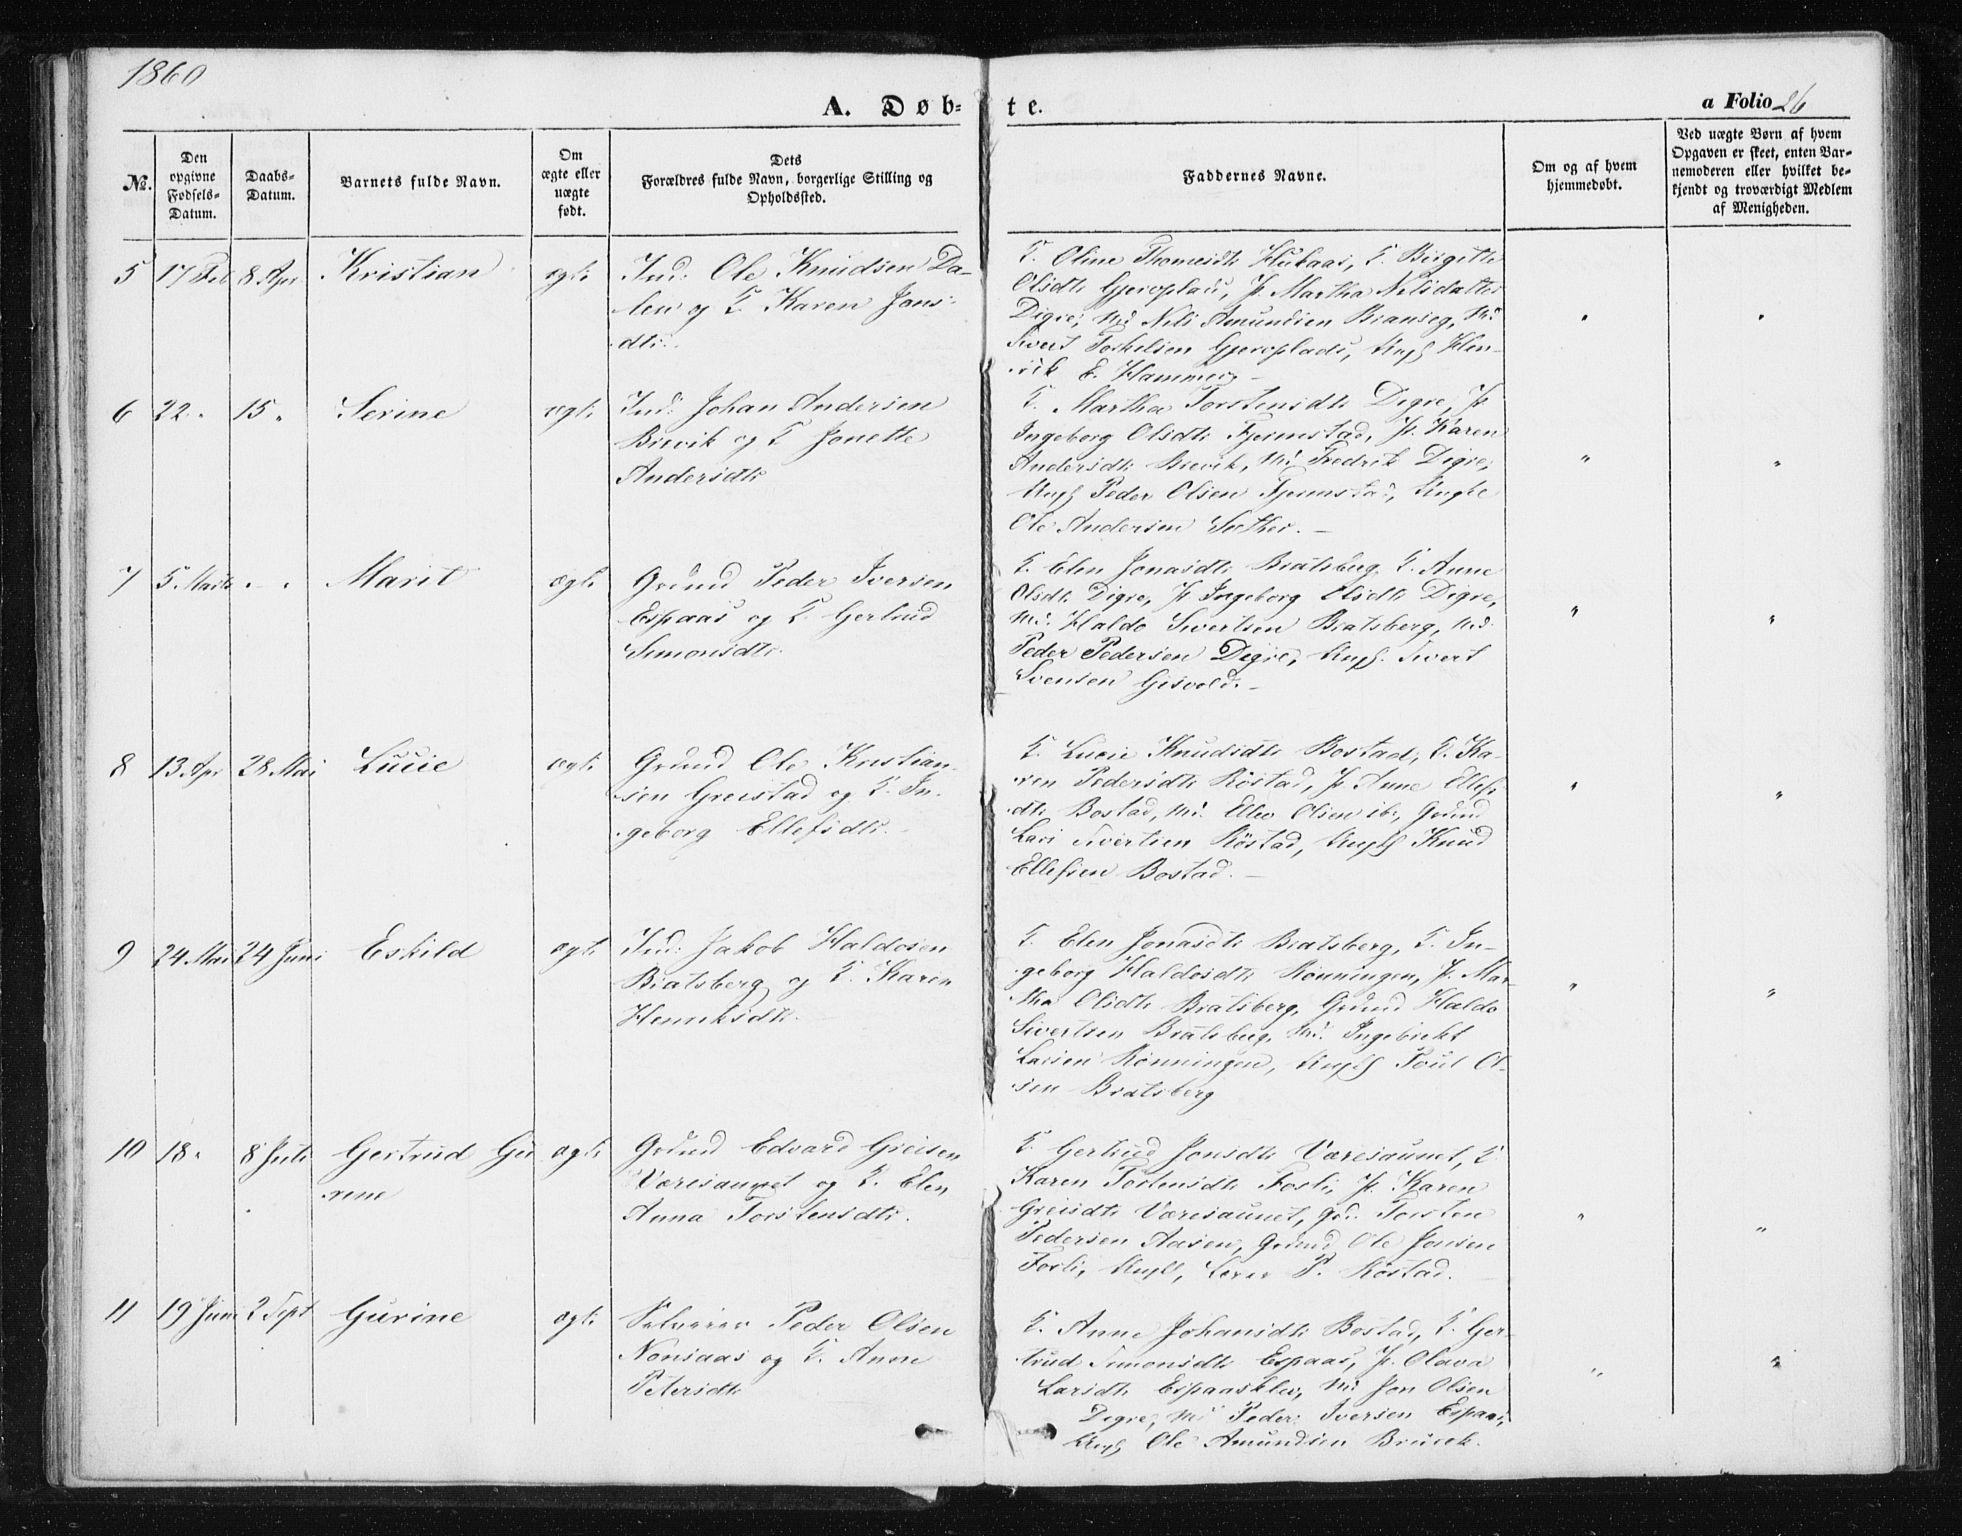 1860
A. Døb-
te.
a Folio 26
No.
Den opgivne Fødsels-Datum.
Daabs-Datum.
Barnets fulde Navn.
Om ægte eller uægte født.
Dets Forældres fulde Navn, borgerlige Stilling og Opholdssted.
Faddernes Navne.
Om og af hvem hjemmedøbt.
Ved uægte Børn af hvem Opgaven er skeet, enten Barnemoderen eller hvilket bekjendt og troværdigt Medlem af Menigheden.
5 17 Feb 8 Apr Kristian ægte
Ind: Ole Knudsen Da-
len og K. Karen Jons-
dtr.
K. Oline Thomesdtr Hukaas, K. Birgitte
Olsdtr Gjervplads, P. Martha Nilsdatter
Digre, Md Nils Amundsen Brauseg, Md
Sivert Torkelsen Gjervplads, Ungk Hen-
rik E. Hammer
6 22 " 15 " Serine ægte
Ind: Johan Andersen
Brevik og K. Jonette
Andersdtr
K. Martha Torstensdtr Digre, P.
Ingeborg Olsdtr Fjermstad, P. Karen
Andersdtr Brevik, Md. Fredrik Digre,
Ungk Peder Olsen Fjermstad, Ungk
Ole Andersen
7 5 Marts - " Marit ægte
Grdmd Peder Iversen
Espaas og K. Gertrud
Simonsdtr.
K. Elen Jonasdtr Bratsberg, K. Anne
Olsdtr Digre, P. Ingeborg Olsdtr Digre,
Md. Haldo Sivertsen Bratsberg, Md.
Peder Pedersen Digre, Ungk. Sivert
Svensen Gisvold. -
8 13 Apr 28 Mai Lucie ægte
Grdmd Ole Kristian-
sen Greistad og K. In-
geborg Ellefsdtr.
K. Lucie Knudsdtr Bostad, K. Ka-
ren Pedersdtr Röstad, P. Anne Ellefs
dtr Bostad, Md. Ellev Olsen ib., Grdmd
Lars Sivertsen Röstad, Ungk Knud
Ellefsen Bostad. -
9 24 Mai 24 Juni Eskild ægte
Ind: Jakob Haldosen
Bratsberg og K. Karen
Henriksdtr.
K. Elen Jonasdtr Bratsberg, K. In-
geborg Haldosdtr Rönningen, P. Mar-
tha Olsdtr Bratsberg, Grdmd Haldo
Sivertsen Bratsberg, Md. Ingebrikt
Larsen Rönningen, Ungk Poul Ol-
sen Bratsberg
10 18 " 8 Juli Gertrud Gu ægte
rine
Grdmd Edvard Greisen
Væresaunet og K. Elen
Anna Torstensdtr.
K. Gertrud Jonsdtr Væresaunet, K.
Karen Tostensdtr Fosli, P. Karen
Greisdtr Væresaunet, Torsten
Pedersen Aasen, Grdmd Ole Jonsen
Fosli, Ungk, P. Röstad.
11 19 Juni 2 Sept Gurine ægte
Selveier Peder Olsen
Nonsaas og K. Anne
Petersdtr
K. Anne Johansdtr Bostad, K. Ger-
trud Simonsdtr Espaas, P. Olava
Larsdtr Espaasklev, Md Jon Olsen
Digre, Md Peder Iversen Espaas,
Ungk Ole Amundsen